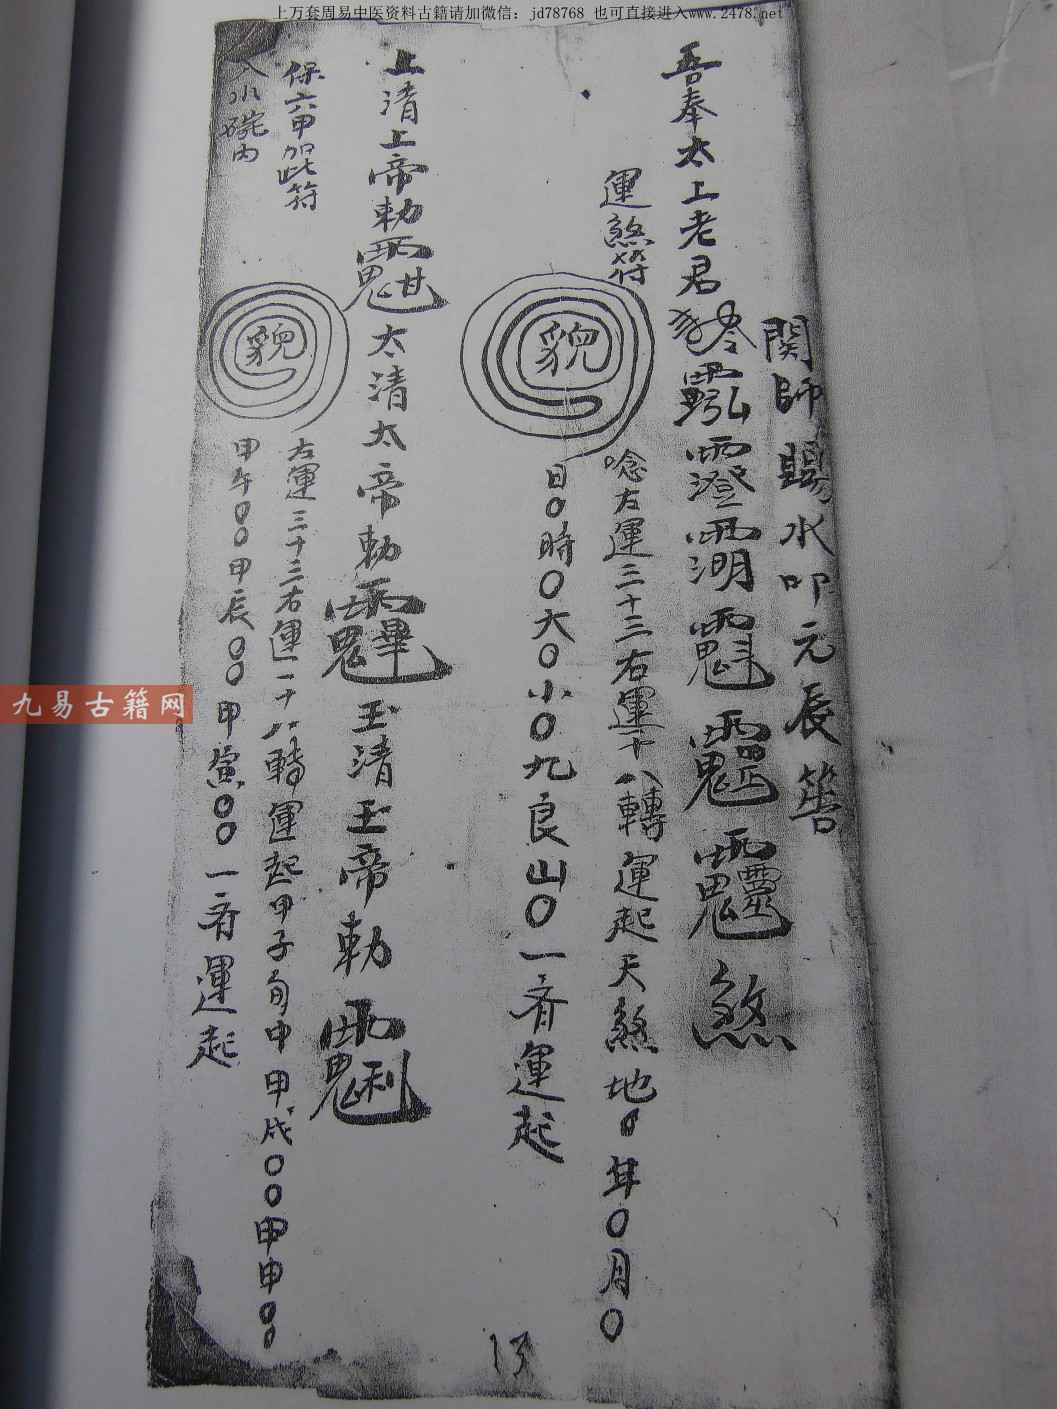 上万套周易中医资料古籍请加微信：jd78768 也可直接进入www.2478.net
関師賜水叩元辰答
吾奉太上老君
煞
運煞符
唸左運三十三右運十八轉運起天煞地〇年〇月〇
日〇時〇大〇小〇九良山〇一斉運起
上清上帝勅 太清太帝勅 玉清玉帝勅
保六甲加此符
入水碗内
左運三十三右運一十八轉運起甲子旬中甲戌〇〇甲申〇〇
甲午〇〇甲辰〇〇甲寅〇〇一斉運起
貌
貌
13
九易古籍网